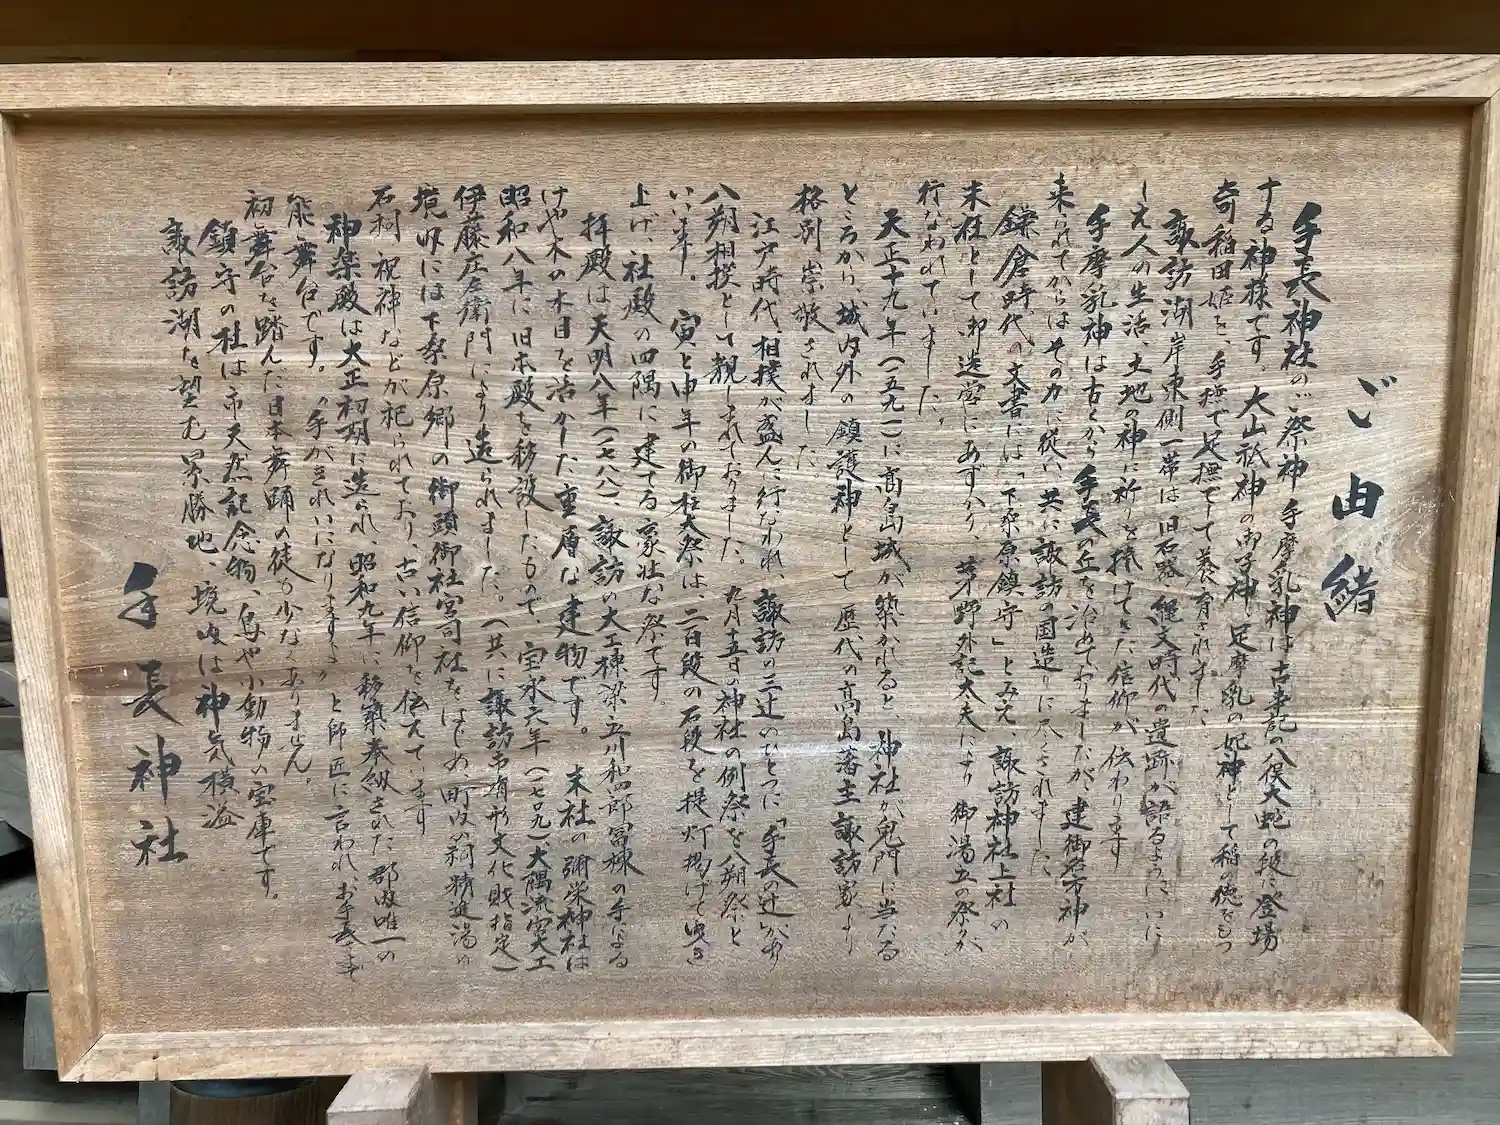 ご由緒
手長神社のご祭神 手摩乳神は古事記の八俣大蛇の段に登場
する神様です。大山祇神の御子神、足摩乳の妃神として稲の徳をもつ
奇稲田姫を、手撫で足撫でして養育されました。
諏訪湖岸東側一帯は旧石器、縄文時代の遺跡が語るようにいに
しえ人の生活、土地の神に祈りを捧げてきた信仰が伝わります
手摩乳神は古くから手長の丘を治めておりましたが、建御名方神が
来られてからはその力に従い共に諏訪の国造りに尽くされました
鎌倉時代の文書には「下桑原鎮守」とみえ、諏訪神社上社の
末社として御造営にあずかり、茅野外記太夫により御湯立の祭が
行なわれていました。
天正十九年(一五九一)に高島城が築かれると、神社が鬼門に当たる
ところから、城内外の鎮護神として歴代の高島藩主諏訪家より
格別崇敬されました。
江戸時代 相撲が盛んに行なわれ、諏訪の三辻のひとつに「手長の辻」があり
八朔相撲として親しまれておりました。九月十五日の神社の例祭を八朔祭と
いいます。寅と申年の御柱大祭は、二百段の石段を提灯掲げて曳き
上げ、社殿の四隅に建てる豪壮な祭です。
拝殿は天明八年(一七八八)諏訪の大工棟梁立川和四郎冨棟の手による
けや木の木目を活かした重層な建物です。末社の彌栄神社は
昭和八年に旧本殿を移設したもので、宝永六年(一七〇九)、大隅流宮大工
伊藤庄左衛門により造られました。(共に諏訪市有形文化財指定)
境内には下桑原郷の御頭御社宮司社をはじめ、町内の祠、精進湯の
石祠、祝神などが祀られており、古い信仰を伝えています
神楽殿は大正初期に造られ、昭和九年に移築奉納された郡内唯一の
能舞台です。「手がきれいになりますよ」と師匠に言われ、お手長さまで
初舞台を踏んだ日本舞踊の徒も少なくありません。
鎮守の杜は市天然記念物、鳥や小動物の宝庫です。
諏訪湖を望む景勝地、境内は神気横溢
手長神社